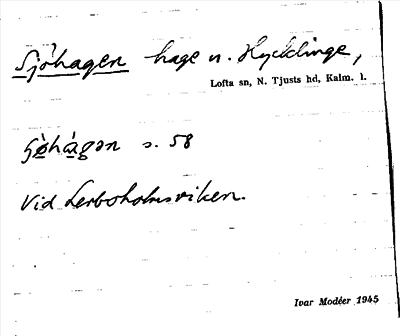 Sjöhagen hage n. Hycklinge,
Lofta sn, N. Tjusts hd, Kalm. l.
s. 58
Vid Lerboholmsviken.
Ivar Modéer 1945